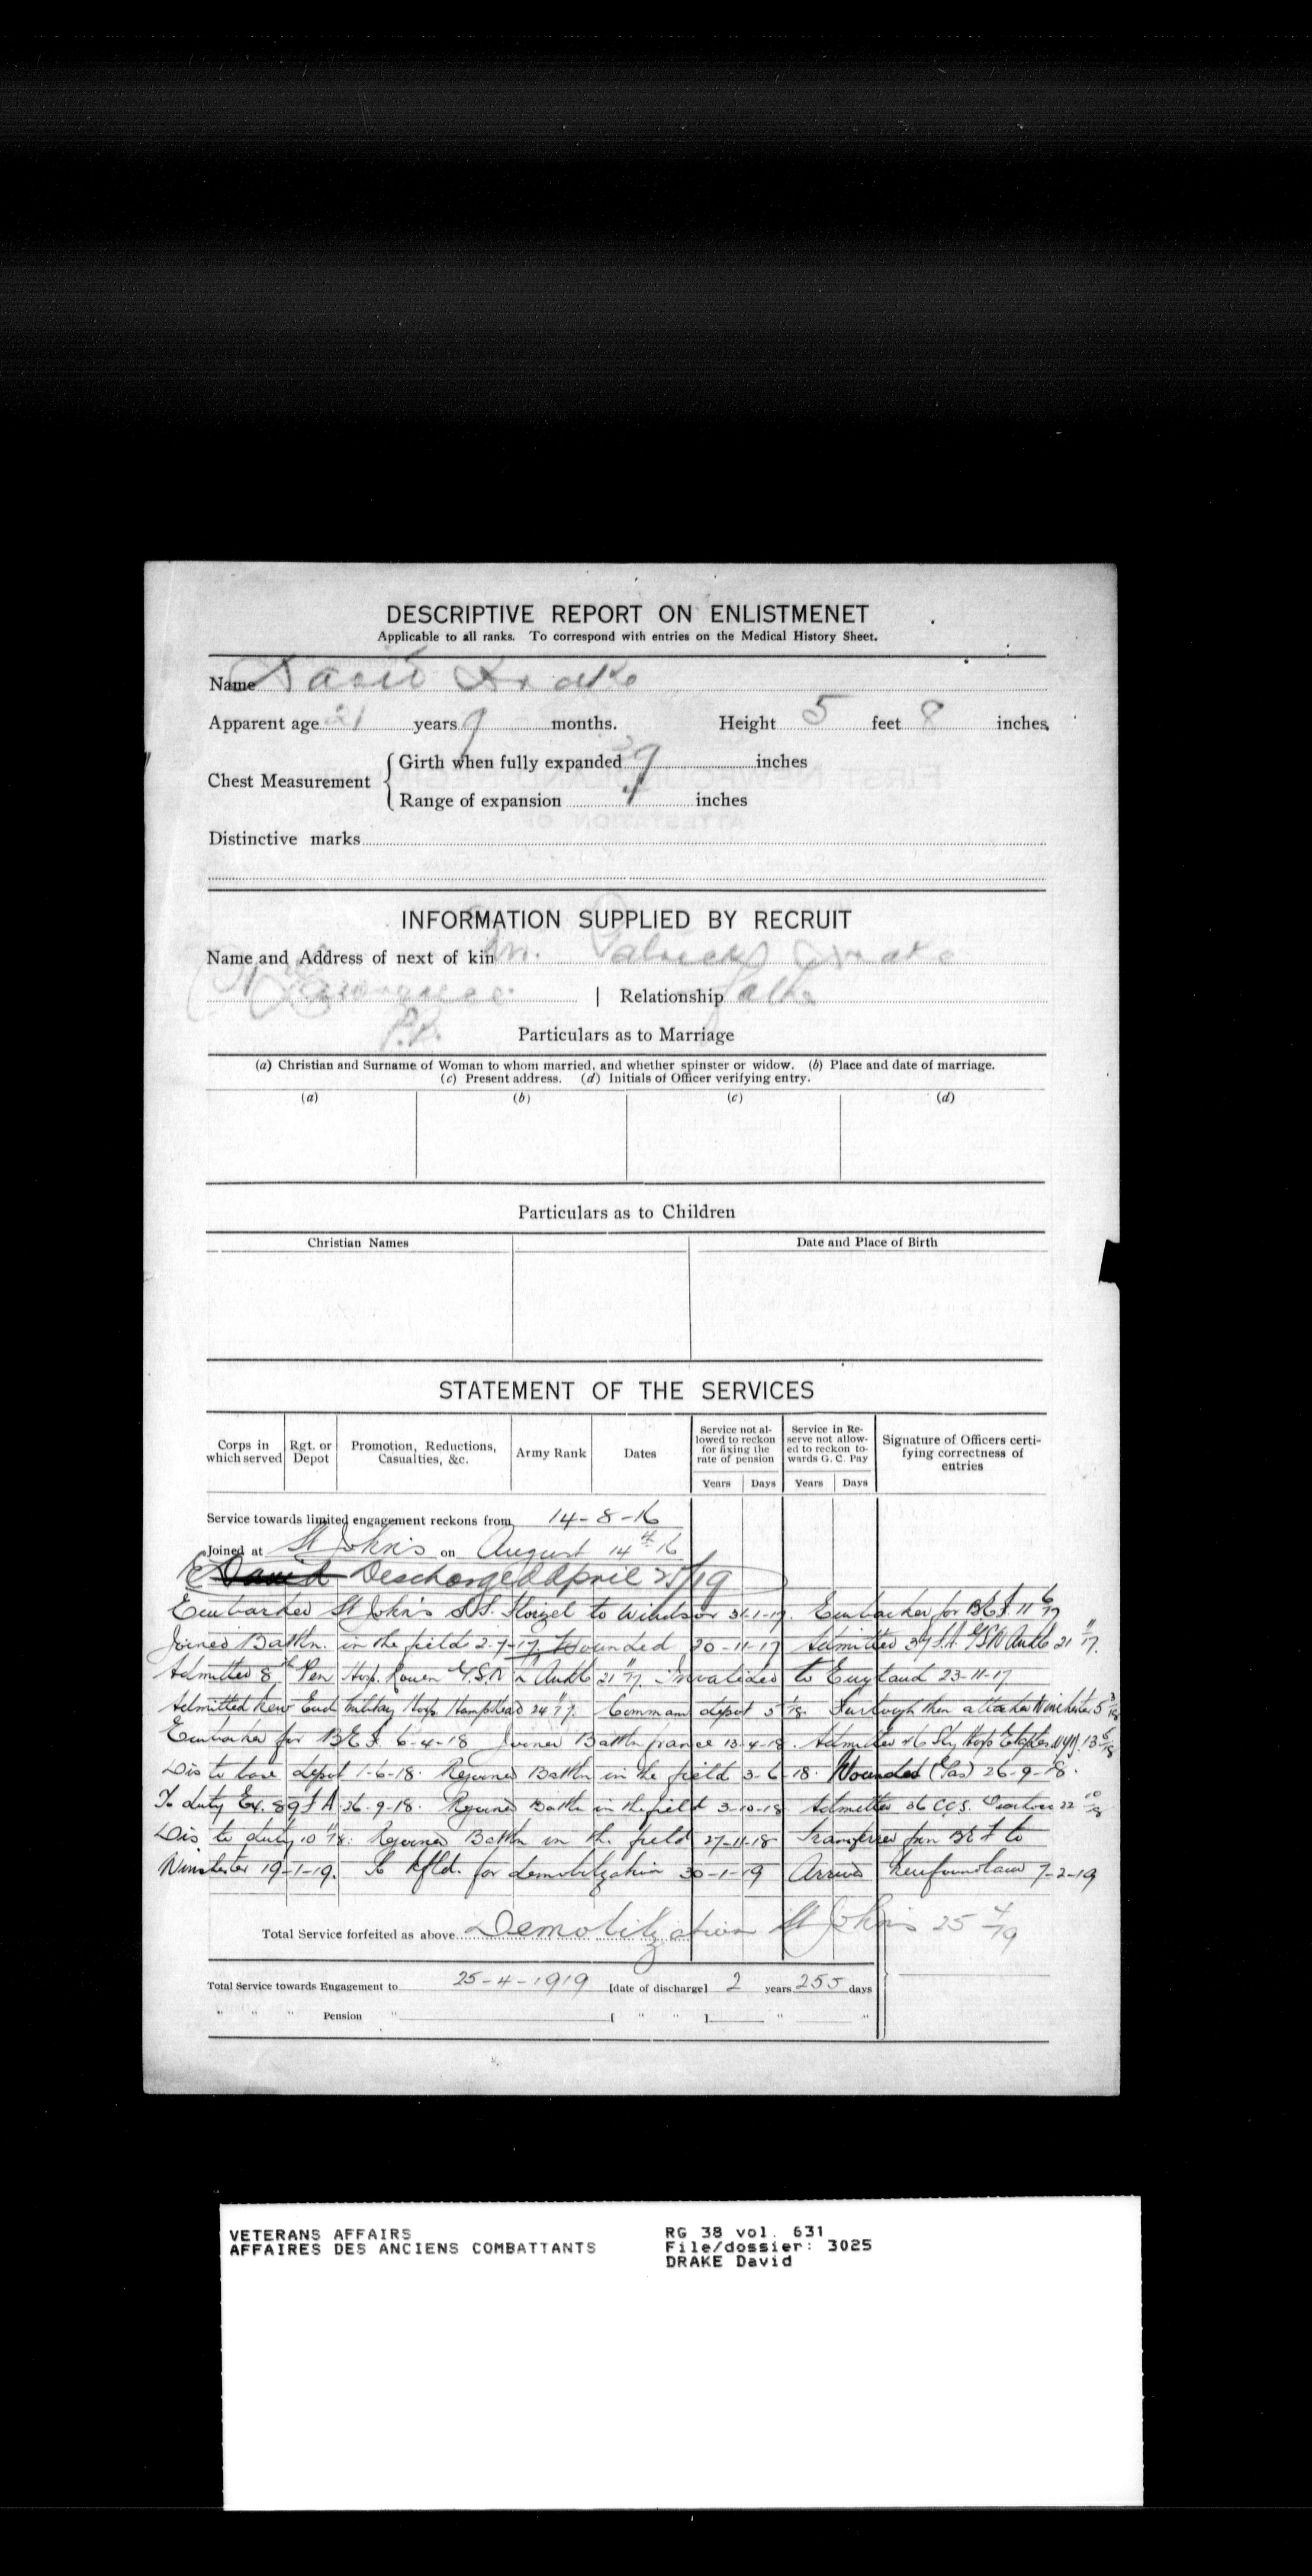 DESCRIPTIVE REPORT ON ENLISTMENET
Applicable to all ranks. To correspond with entries on the Medical History Sheet.
Name David Drake
Apparent age 21 years 9 months. Height 5 feet 8 inches
Chest Measurement { Girth when fully expanded 39 inches
Range of expansion 4 inches
Distinctive marks
INFORMATION SUPPLIED BY RECRUIT
Name and Address of next of kin Mr. Patrick Drake
St Lawrence | Relationship Father
P.B.
Particulars as to Marriage
(a) Christian and Surname of Woman to whom married, and whether spinster or widow. (b) Place and date of marriage.
(c) Present address. (d) Initials of Officer verifying entry.
(a) (b) (c) (d)
Particulars as to Children
Christian Names Date and Place of Birth
STATEMENT OF THE SERVICES
Corps in which served Rgt. or Depot Promotion, Reductions, Casualties, &c. Army Rank Dates Service not allowed to reckon for fixing the rate of pension Service in Reserve not allowed to reckon towards G. C. Pay Signature of Officers certifying correctness of entries
Years Days Years Days
Service towards limited engagement reckons from 14-8-16
Joined at St John's on August 14th 16
Discharged April 25/19
Embarked St John's S.S. Florizel to Windsor 31-1-17. Embarked for B.E.F. 11 6/17
Joined Battn. in the field 2-7-17. Wounded 20-11-17 Admitted 37 F.A. GSW Ankle 21 11/17.
Admitted 8th Gen Hosp. Rouen G.S.W L Ankle 21 11/17. Invalided to England 23-11-17
Admitted New End Military Hosp Hampstead 24 11/17. Command depot 5 1/18. Furlough then attached Winchester 5 3/18
Embarked for B.E.F. 6-4-18 Joined Battn France 13-4-18. Admitted 46 Sty Hosp Etaples 13 5/18
Dis to base depot 1-6-18. Rejoined Battn in the field 3-6-18. Wounded (Gas) 26-9-18.
To duty Ex. 89 F A 26-9-18. Rejoined Battn in the field 3-10-18 Admitted 36 CCS. 22 10/18
Dis to duty 10 11/18. Rejoined Battn in the field 27-11-18 Transferred from BEF to
Winchester 19-1-19. To Nfld. for demobilization 30-1-19 Arrived Newfoundland 7-2-19
Total Service forfeited as above Demobilization St John's 25 4/19
Total Service towards Engagement to 25-4-1919 [date of discharge] 2 years 255 days
" " " Pension " [ " " ] " "
VETERANS AFFAIRS RG 38 vol. 631
AFFAIRES DES ANCIENS COMBATTANTS File/dossier: 3025
DRAKE David